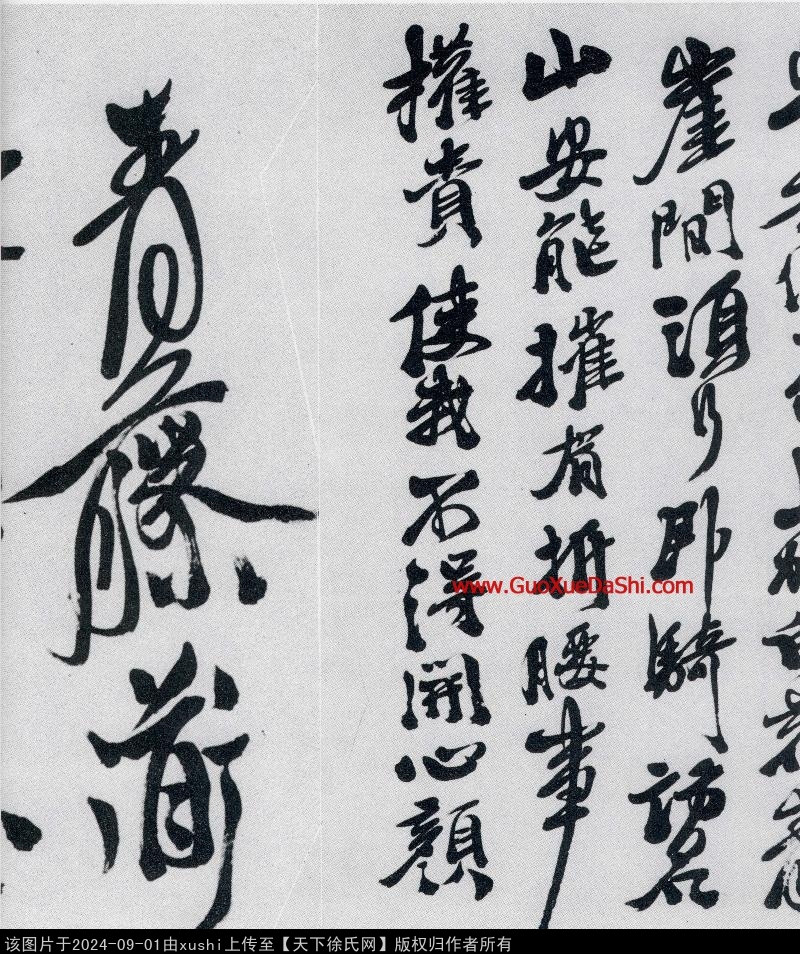 崖間須行即騎訪名
山安能摧眉折腰事
權貴使我不得開心顏
青藤道
www.GuoXueDaShi.com
该图片于2024-09-01由xushi上传至【天下徐氏网】版权归作者所有